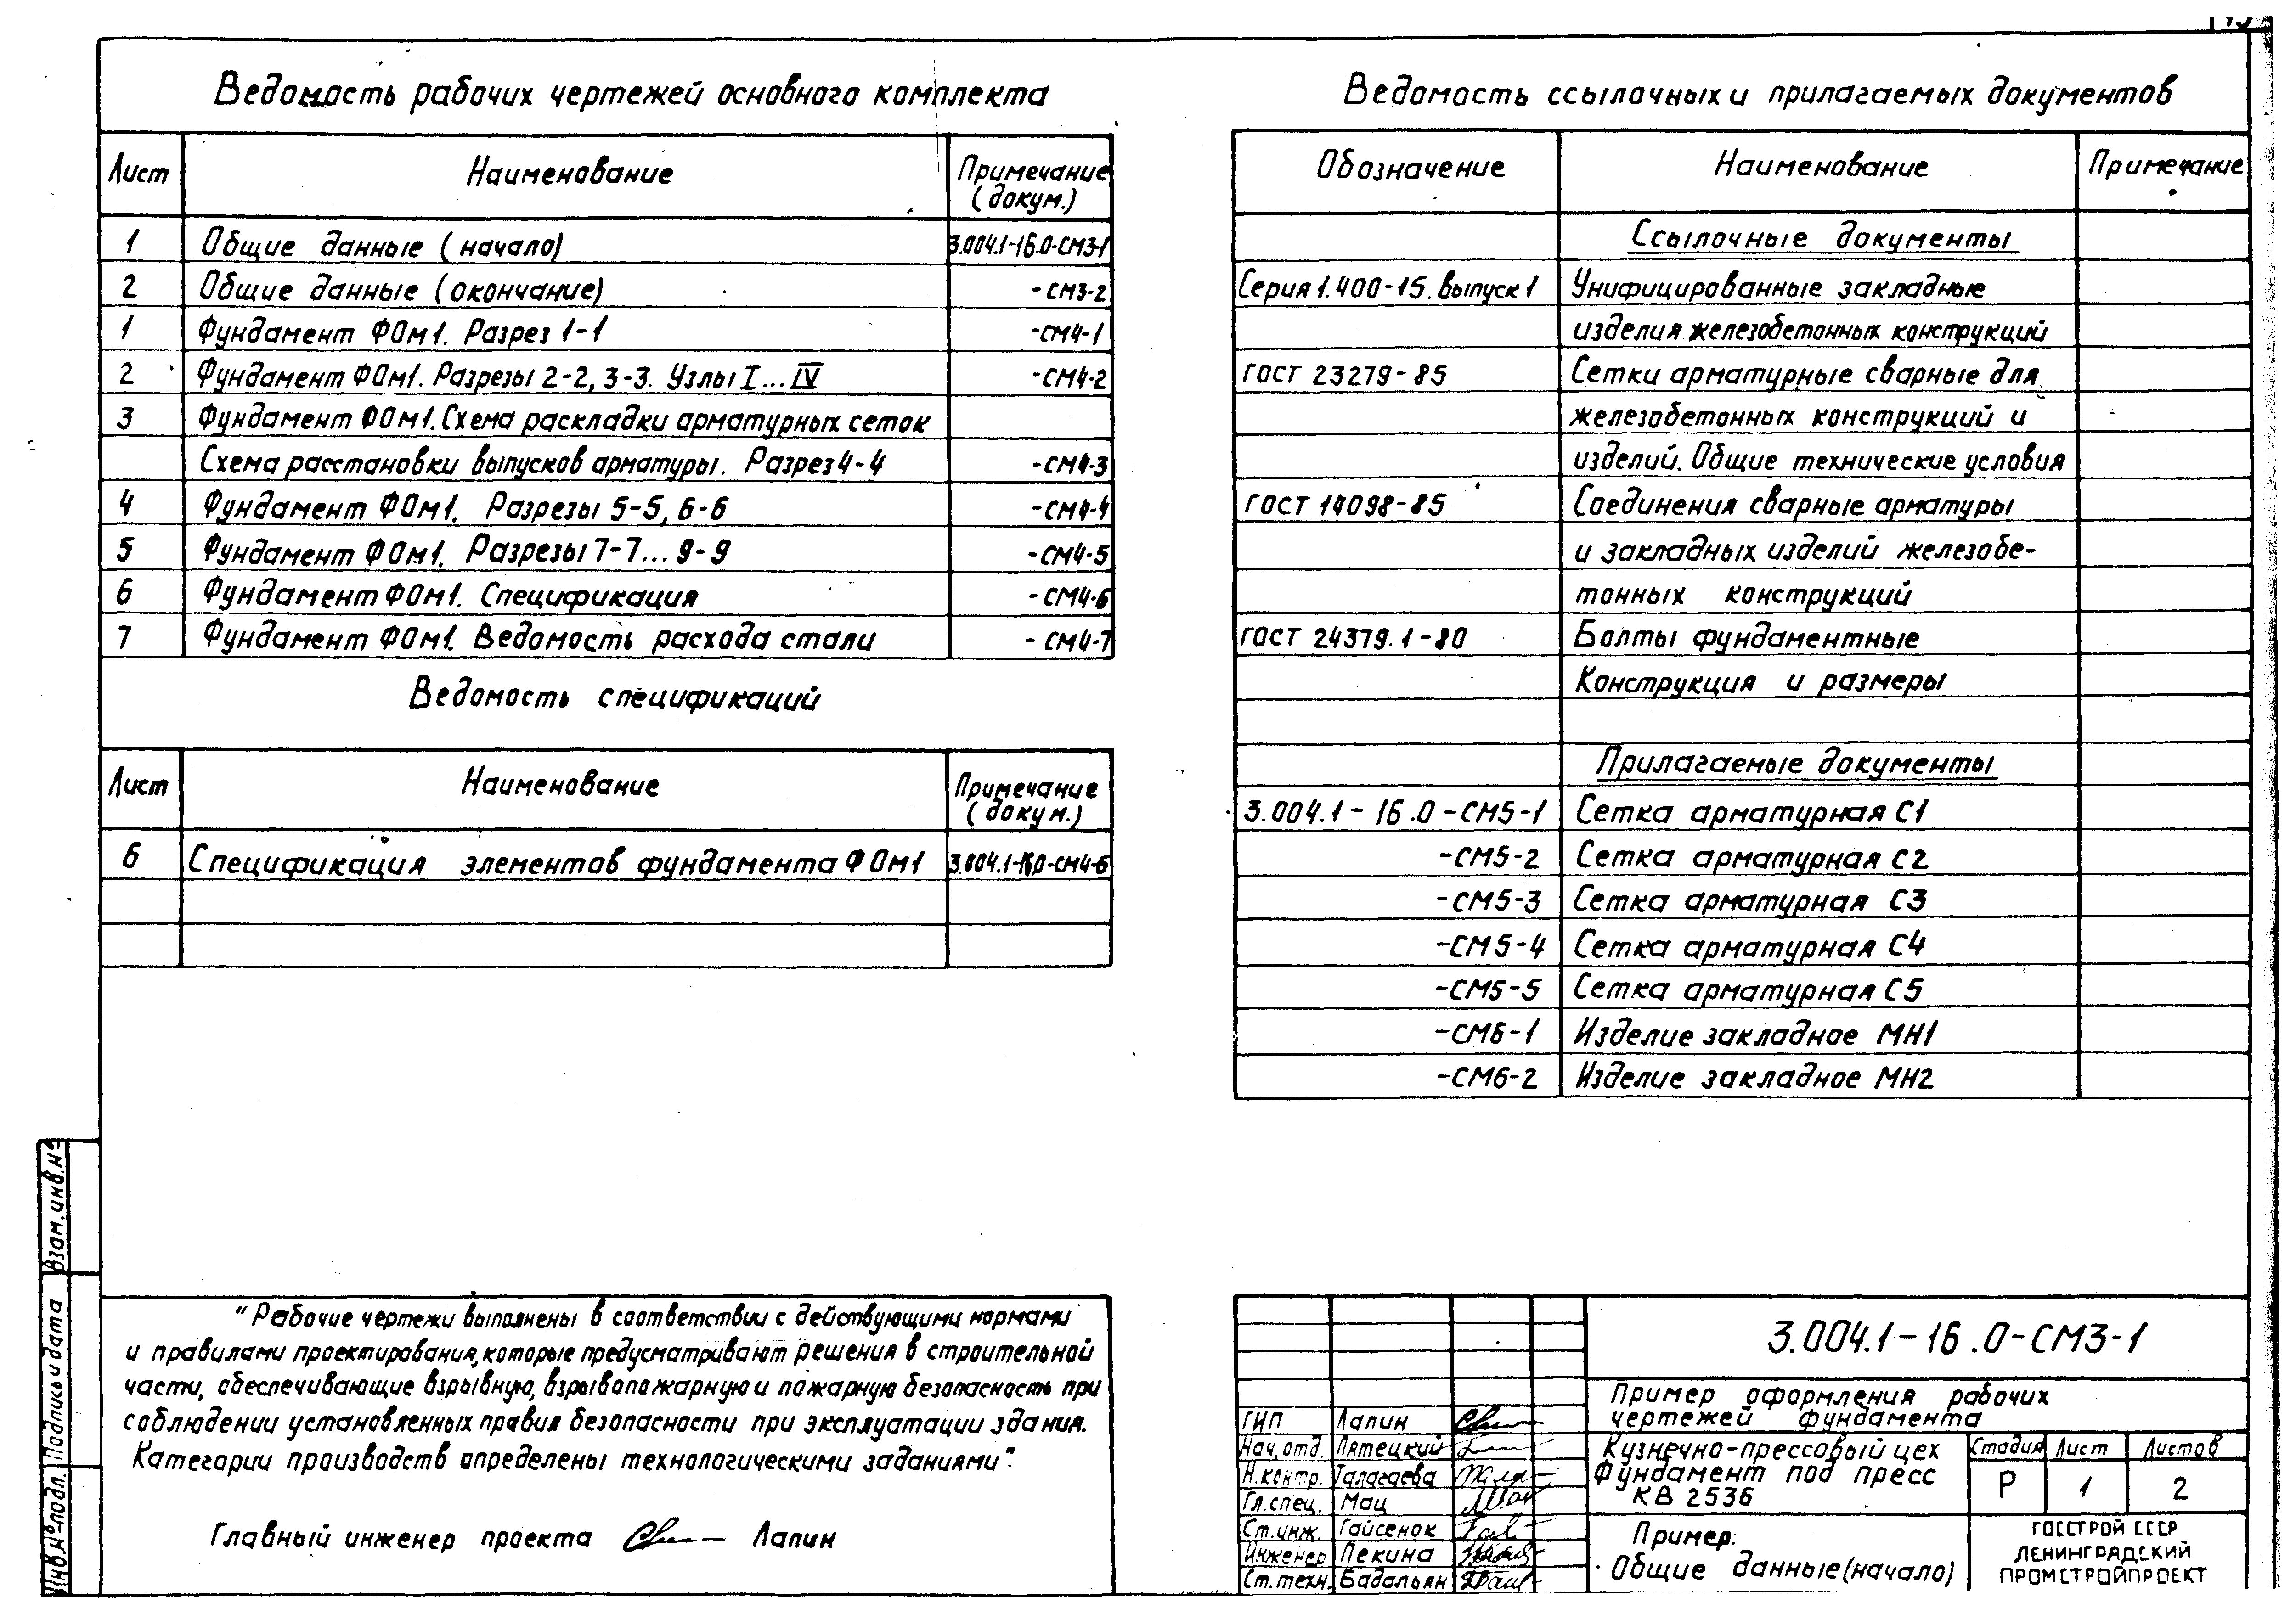 Ведомость рабочих чертежей основного комплекта
Лист Наименование Примечание (докум.)
1 Общие данные (начало) 3.004.1-16.0-СМ3-1
2 Общие данные (окончание) -СМ3-2
1 Фундамент ФОм1. Разрез 1-1 -СМ4-1
2 Фундамент ФОм1. Разрезы 2-2, 3-3. Узлы I...IV -СМ4-2
3 Фундамент ФОм1. Схема раскладки арматурных сеток
Схема расстановки выпусков арматуры. Разрез 4-4 -СМ4-3
4 Фундамент ФОм1. Разрезы 5-5, 6-6 -СМ4-4
5 Фундамент ФОм1. Разрезы 7-7... 9-9 -СМ4-5
6 Фундамент ФОм1. Спецификация -СМ4-6
7 Фундамент ФОм1. Ведомость расхода стали -СМ4-7
Ведомость спецификаций
Лист Наименование Примечание (докум.)
6 Спецификация элементов фундамента ФОм1 3.004.1-16.0-СМ4-6
"Рабочие чертежи выполнены в соответствии с действующими нормами
и правилами проектирования, которые предусматривают решения в строительной
части, обеспечивающие взрывную, взрывопожарную и пожарную безопасность при
соблюдении установленных правил безопасности при эксплуатации здания.
Категории производств определены технологическими заданиями".
Главный инженер проекта Лапин
Ведомость ссылочных и прилагаемых документов
Обозначение Наименование Примечание
Ссылочные документы
Серия 1.400-15. Выпуск 1 Унифицированные закладные
изделия железобетонных конструкций
ГОСТ 23279-85 Сетки арматурные сварные для
железобетонных конструкций и
изделий. Общие технические условия
ГОСТ 14098-85 Соединения сварные арматуры
и закладных изделий железобе-
тонных конструкций
ГОСТ 24379.1-80 Болты фундаментные
Конструкция и размеры
Прилагаемые документы
3.004.1-16.0-СМ5-1 Сетка арматурная С1
-СМ5-2 Сетка арматурная С2
-СМ5-3 Сетка арматурная С3
-СМ5-4 Сетка арматурная С4
-СМ5-5 Сетка арматурная С5
-СМ6-1 Изделие закладное МН1
-СМ6-2 Изделие закладное МН2
3.004.1-16.0-СМ3-1
Пример оформления рабочих
чертежей фундамента
ГИП Лапин
Нач. отд. Пятецкий
Н.контр. Талагаева
Гл.спец. Мац
Ст.инж. Гайсенок
Инженер Пекина
Ст.техн. Бадальян
Кузнечно-прессовый цех
Фундамент под пресс
КВ 2536
Стадия Лист Листов
Р 1 2
Пример.
Общие данные (начало)
ГОССТРОЙ СССР
ЛЕНИНГРАДСКИЙ
ПРОМСТРОЙПРОЕКТ
Взам.инв.№
Подпись и дата
Инв.№ подл.